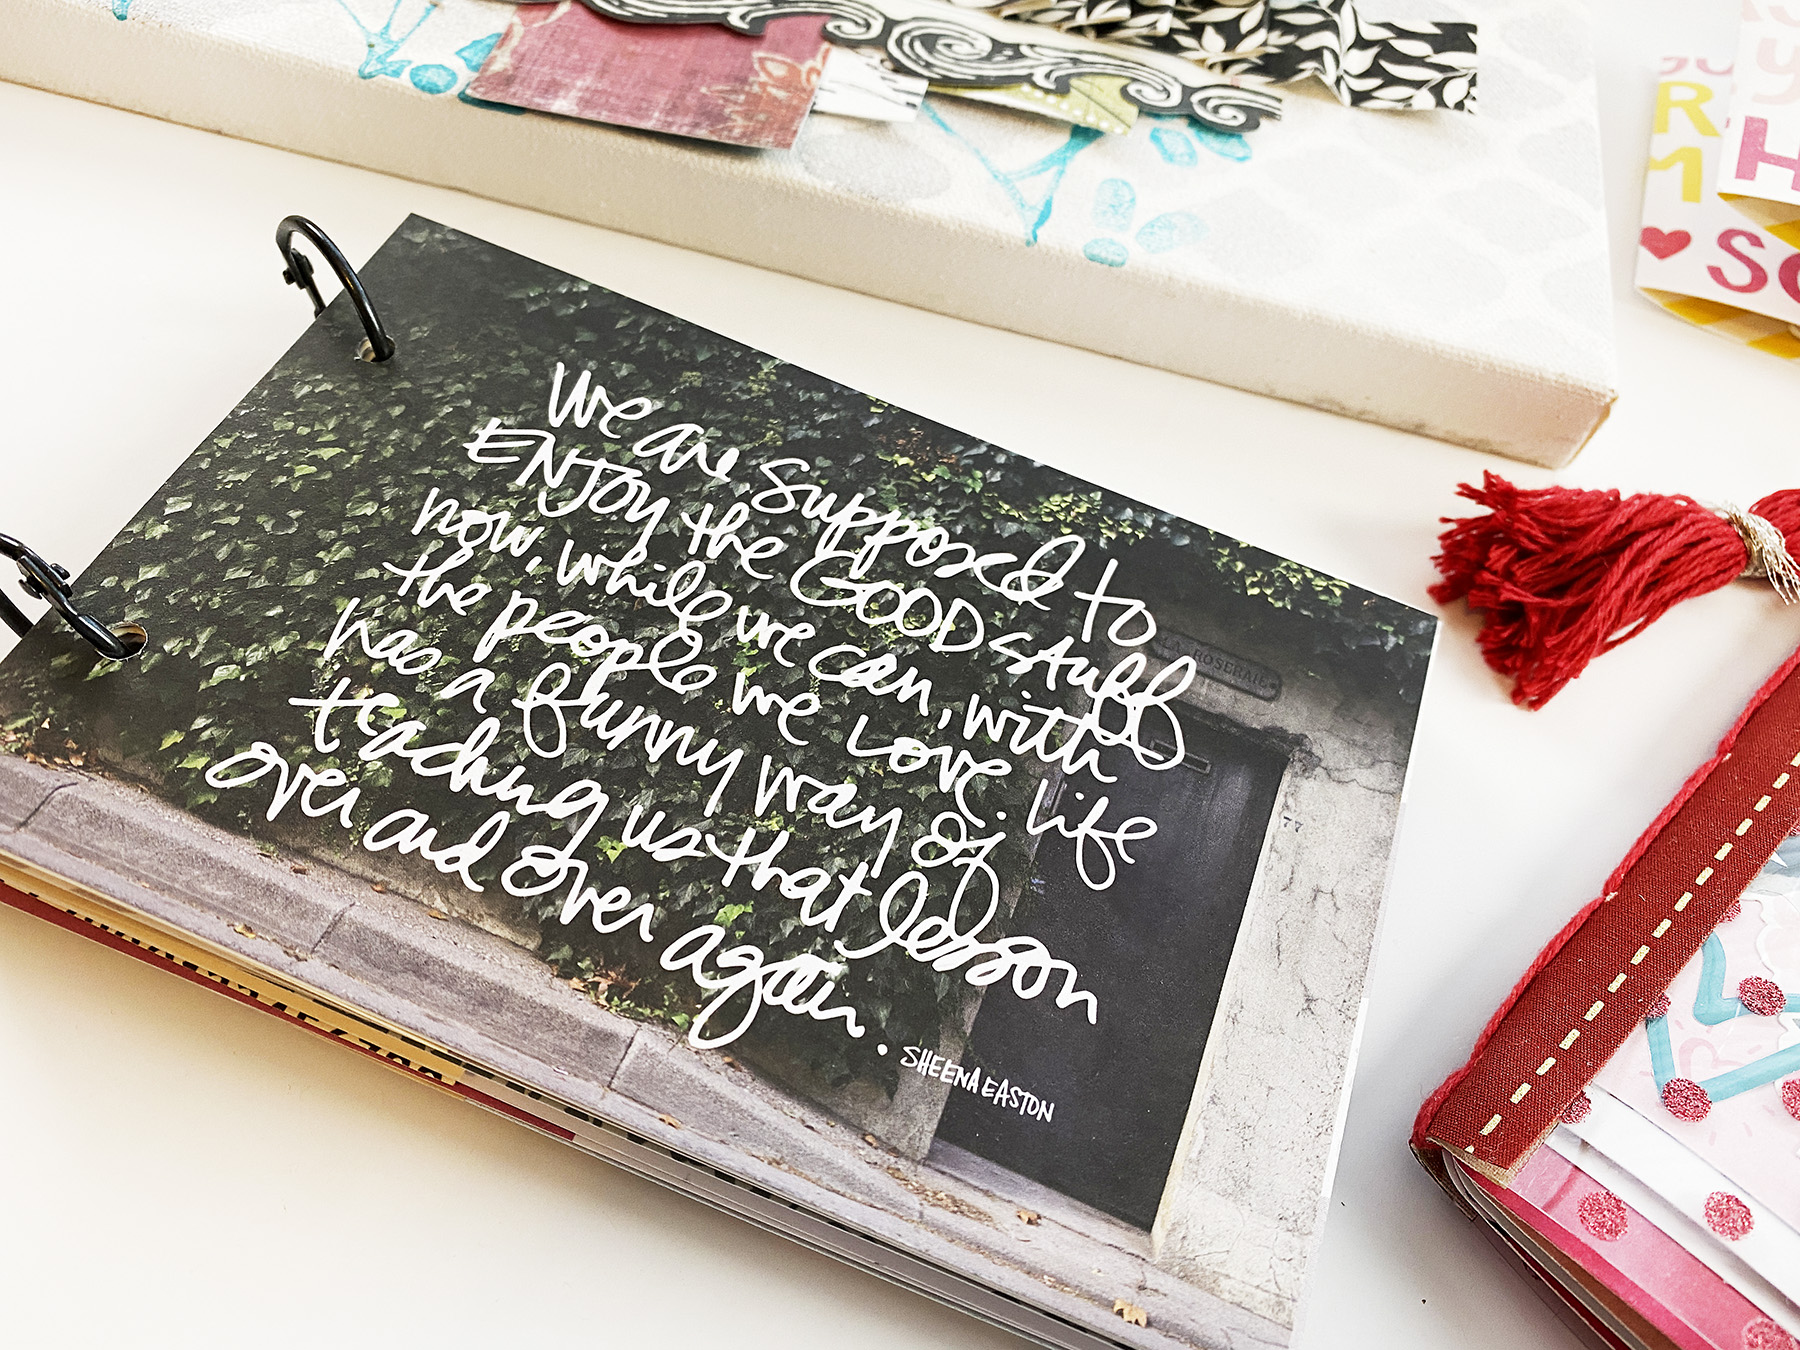 We are supposed to
ENJOY the GOOD stuff
now, while we can, with
the people we love. Life
has a funny way of
teaching us that lesson
over and over again.
SHEENA EASTON
ROSERAIE
77
R
M
H
SO